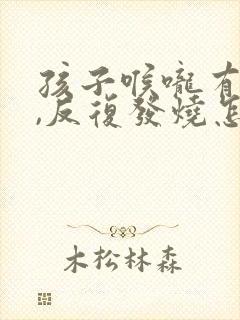 孩子喉嚨有
,反復發燒怎
木松林森